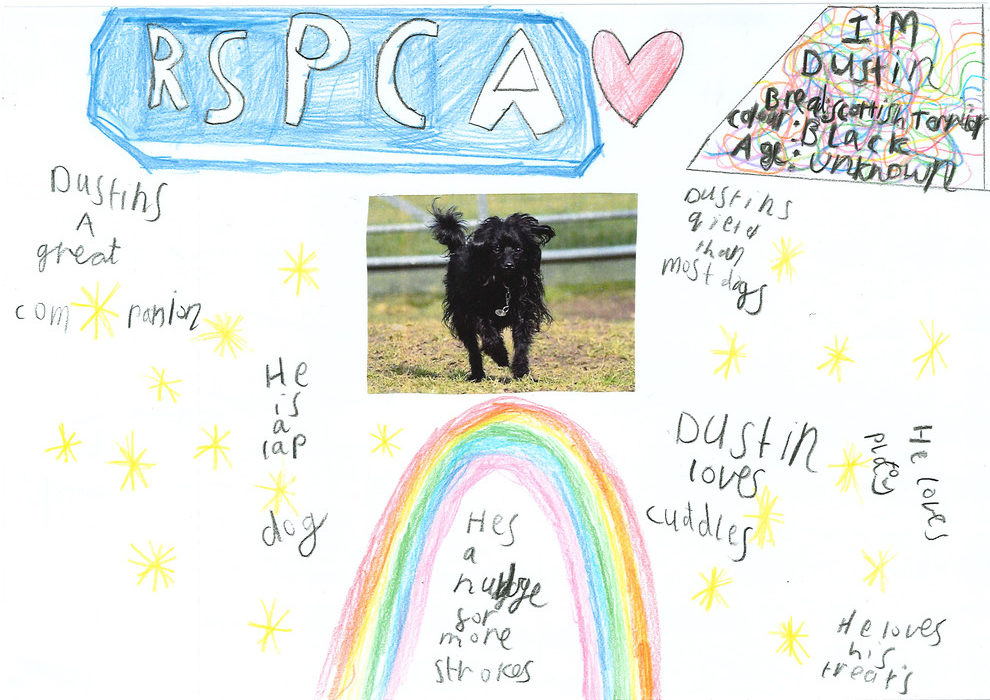 RSPCA
I'M
Dustin
Bread:scottish Terrier
colour:Black
Age: unknown
Dustins
A
great
companion
Dustins
than
most dogs
He
is
a
lap
dog
Dustin
loves
cuddles
He loves
play
Hes
a
nudge
for
more
strokes
He loves
his
treats